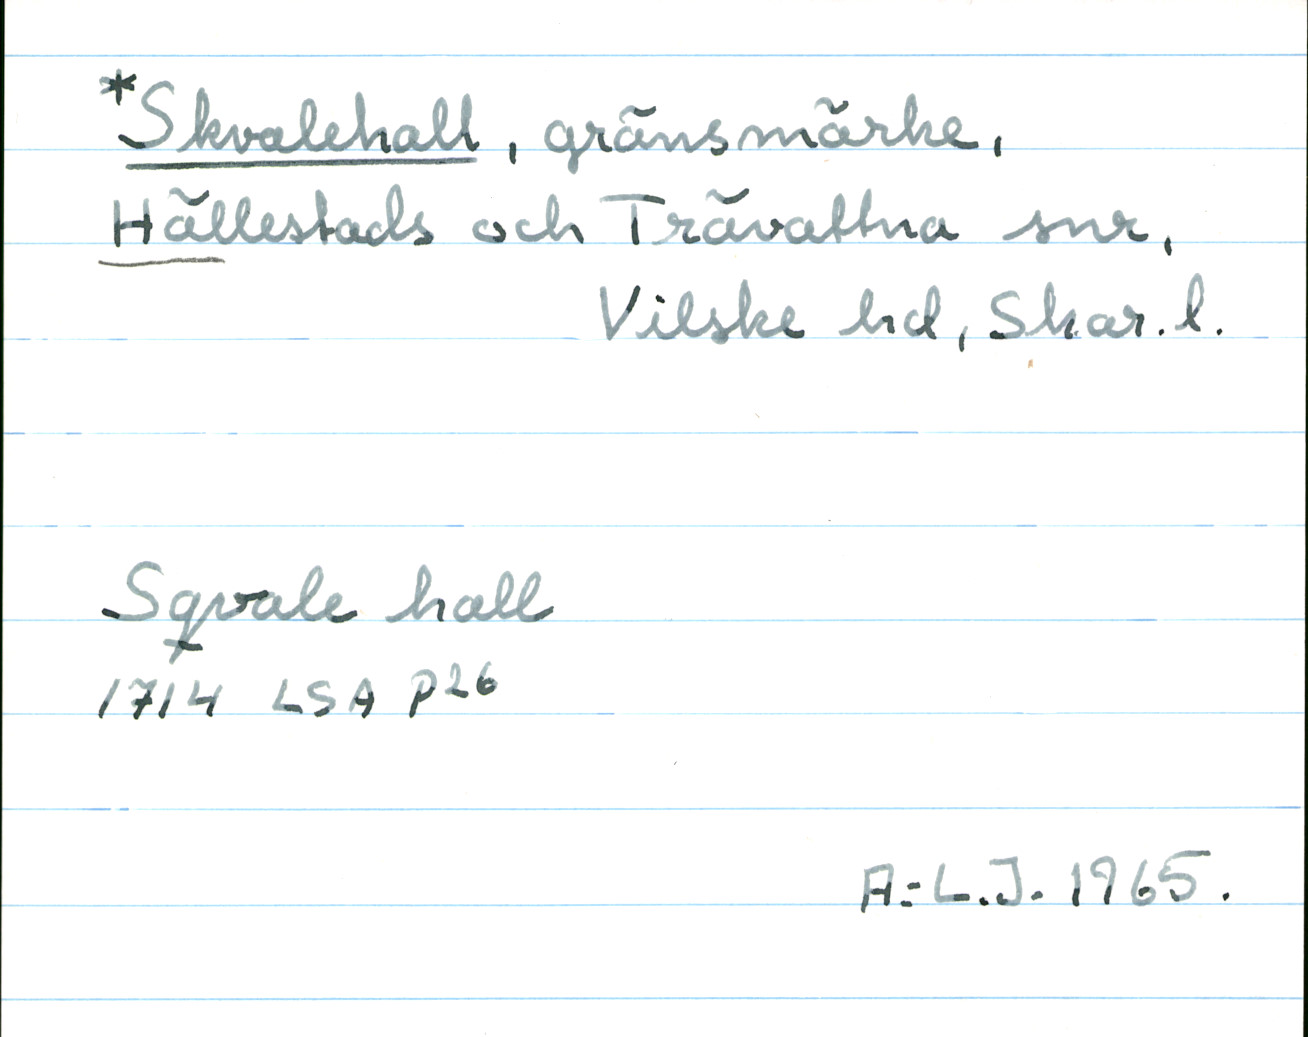 *Skvalehall, gränsmärke,
Hällestads och Trävattna snr,
Vilske hd, Skar. l.
Sqvale hall
1714 LSA P26
A:L.J. 1965.